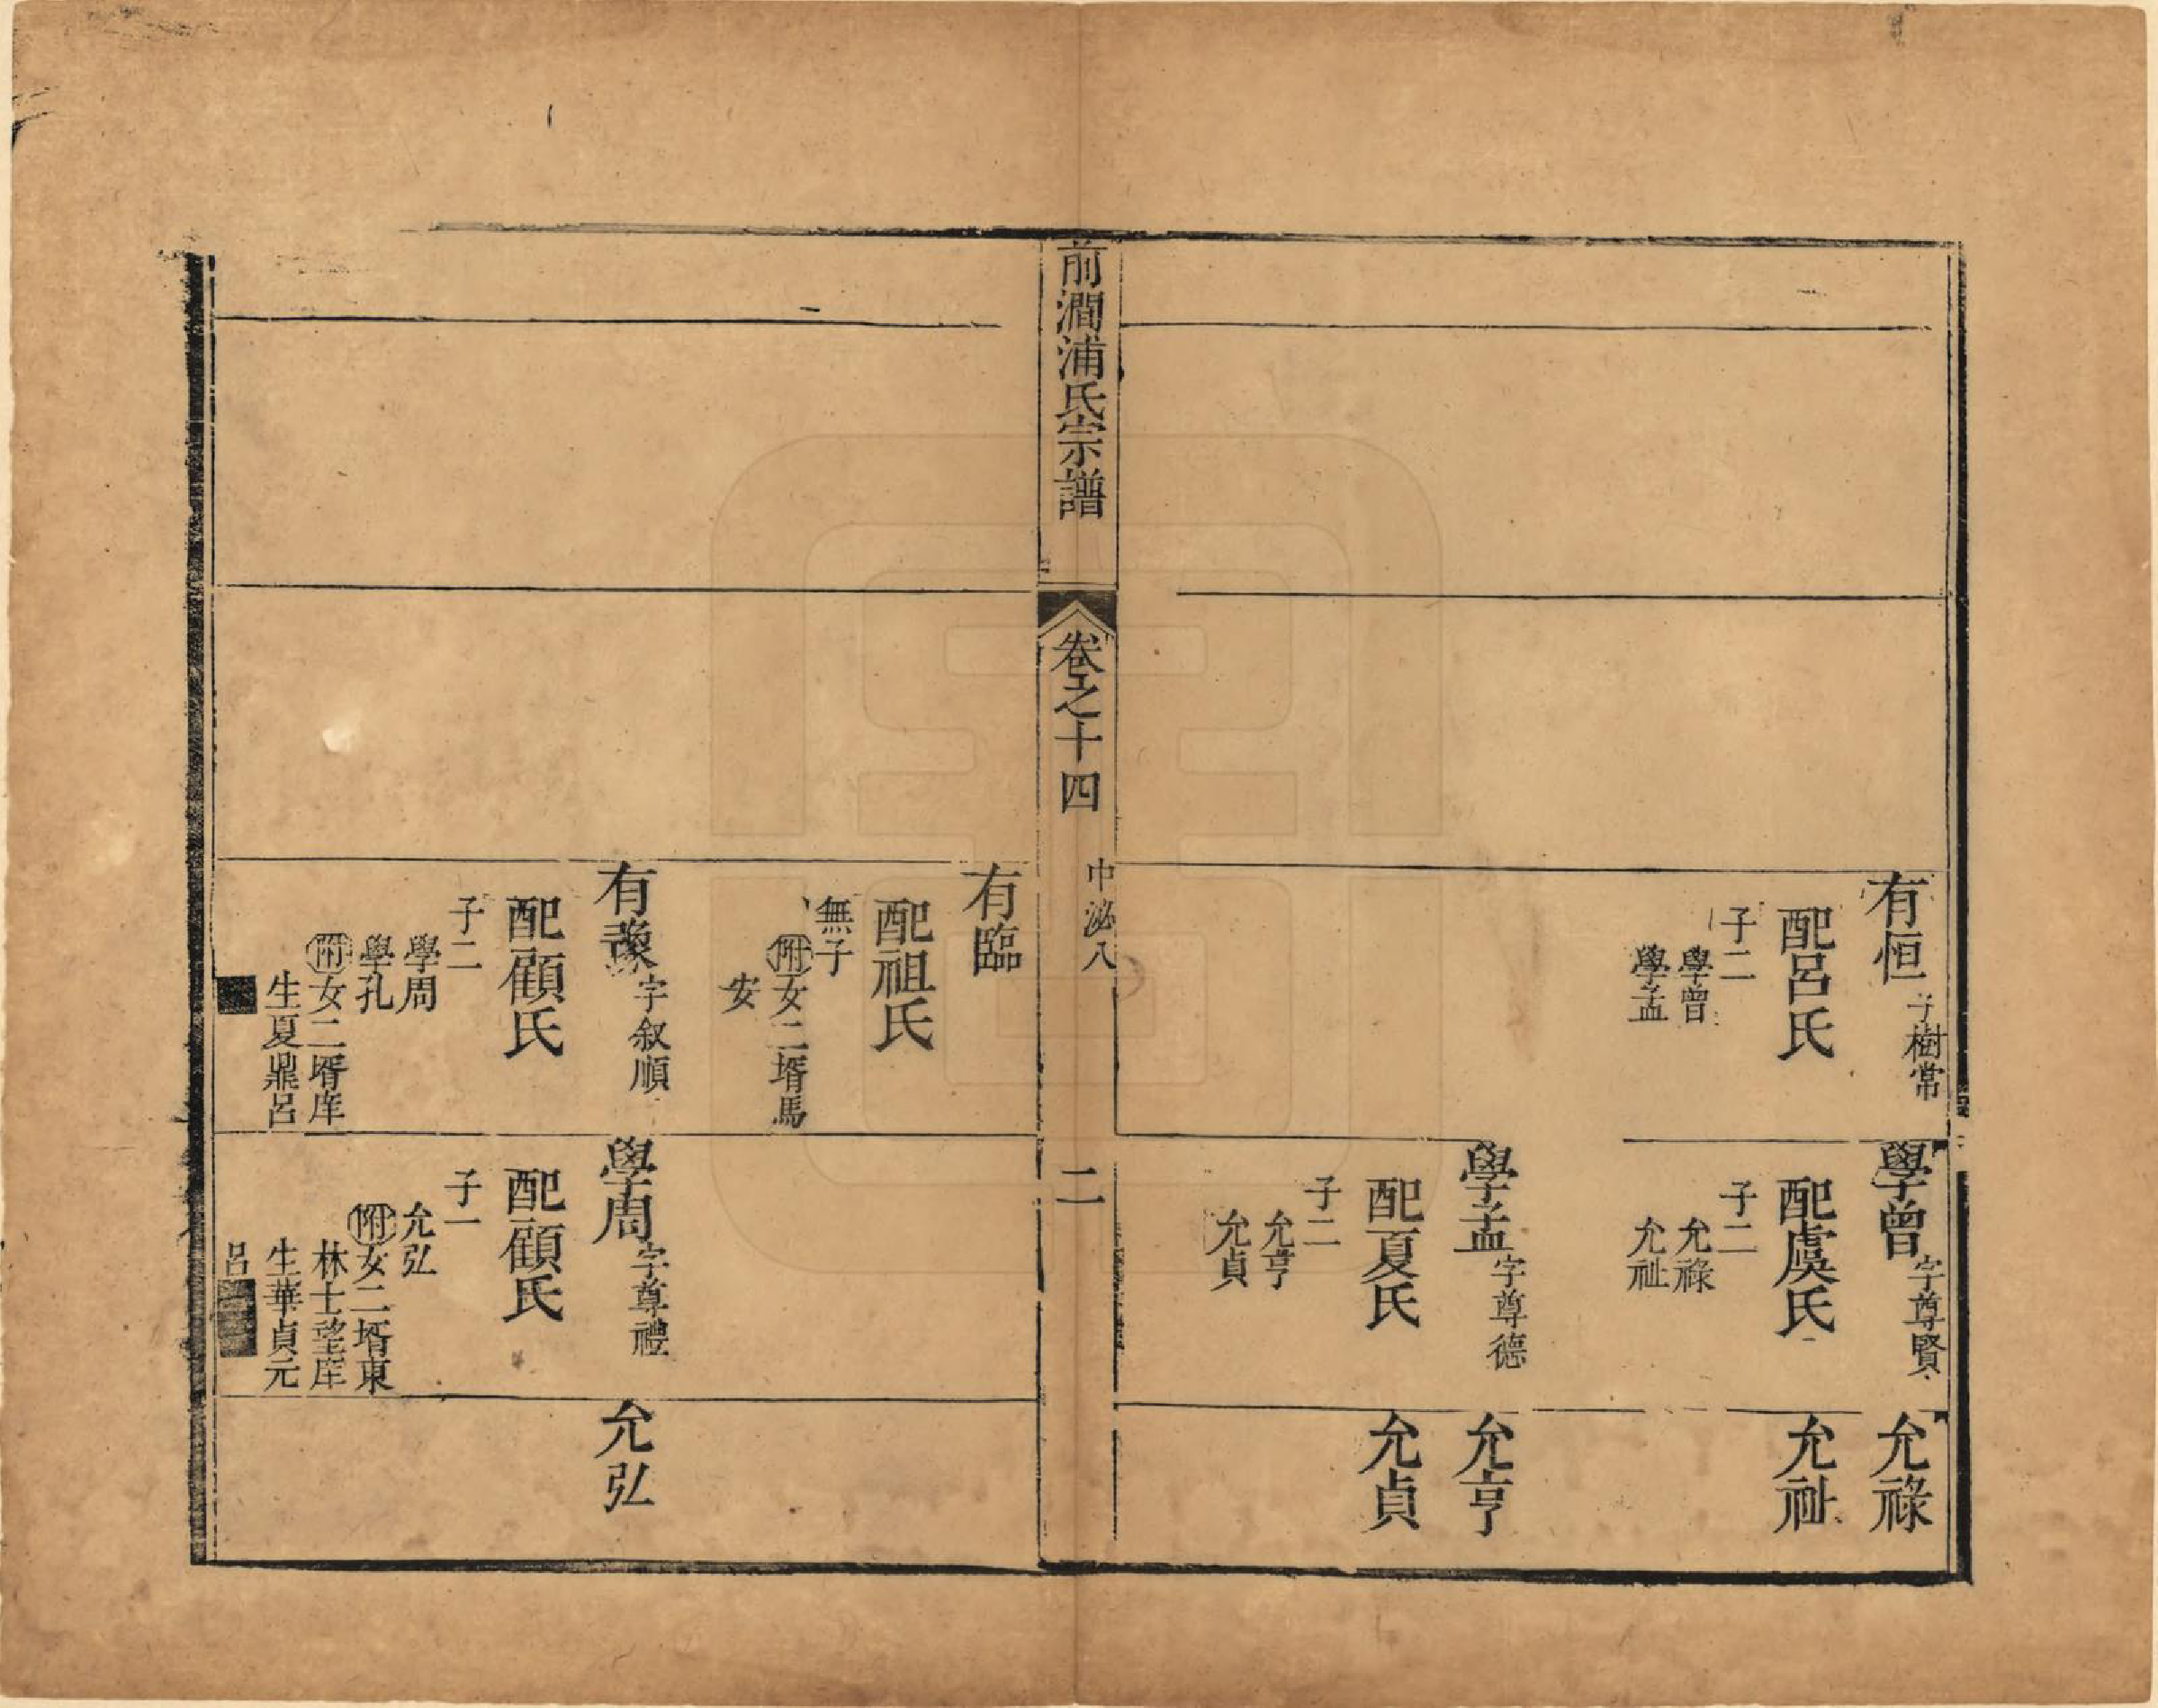 有恒字樹常
配呂氏
子二
學曾
學孟
學曾字尊賢
配虞氏
子二
允祿
允祉
學孟字尊德
配夏氏
子二
允亨
允貞
允祿
允祉
允亨
允貞
前澗浦氏宗譜
卷之十四
中泌八
二
有臨
配祖氏
無子
附女二壻馬
安
有豫字叙順
配顧氏
子二
學周
學孔
附女二壻庠
生夏鼎呂
學周字尊禮
配顧氏
子一
允弘
附女二壻東
林士望庠
生華貞元
呂
允弘